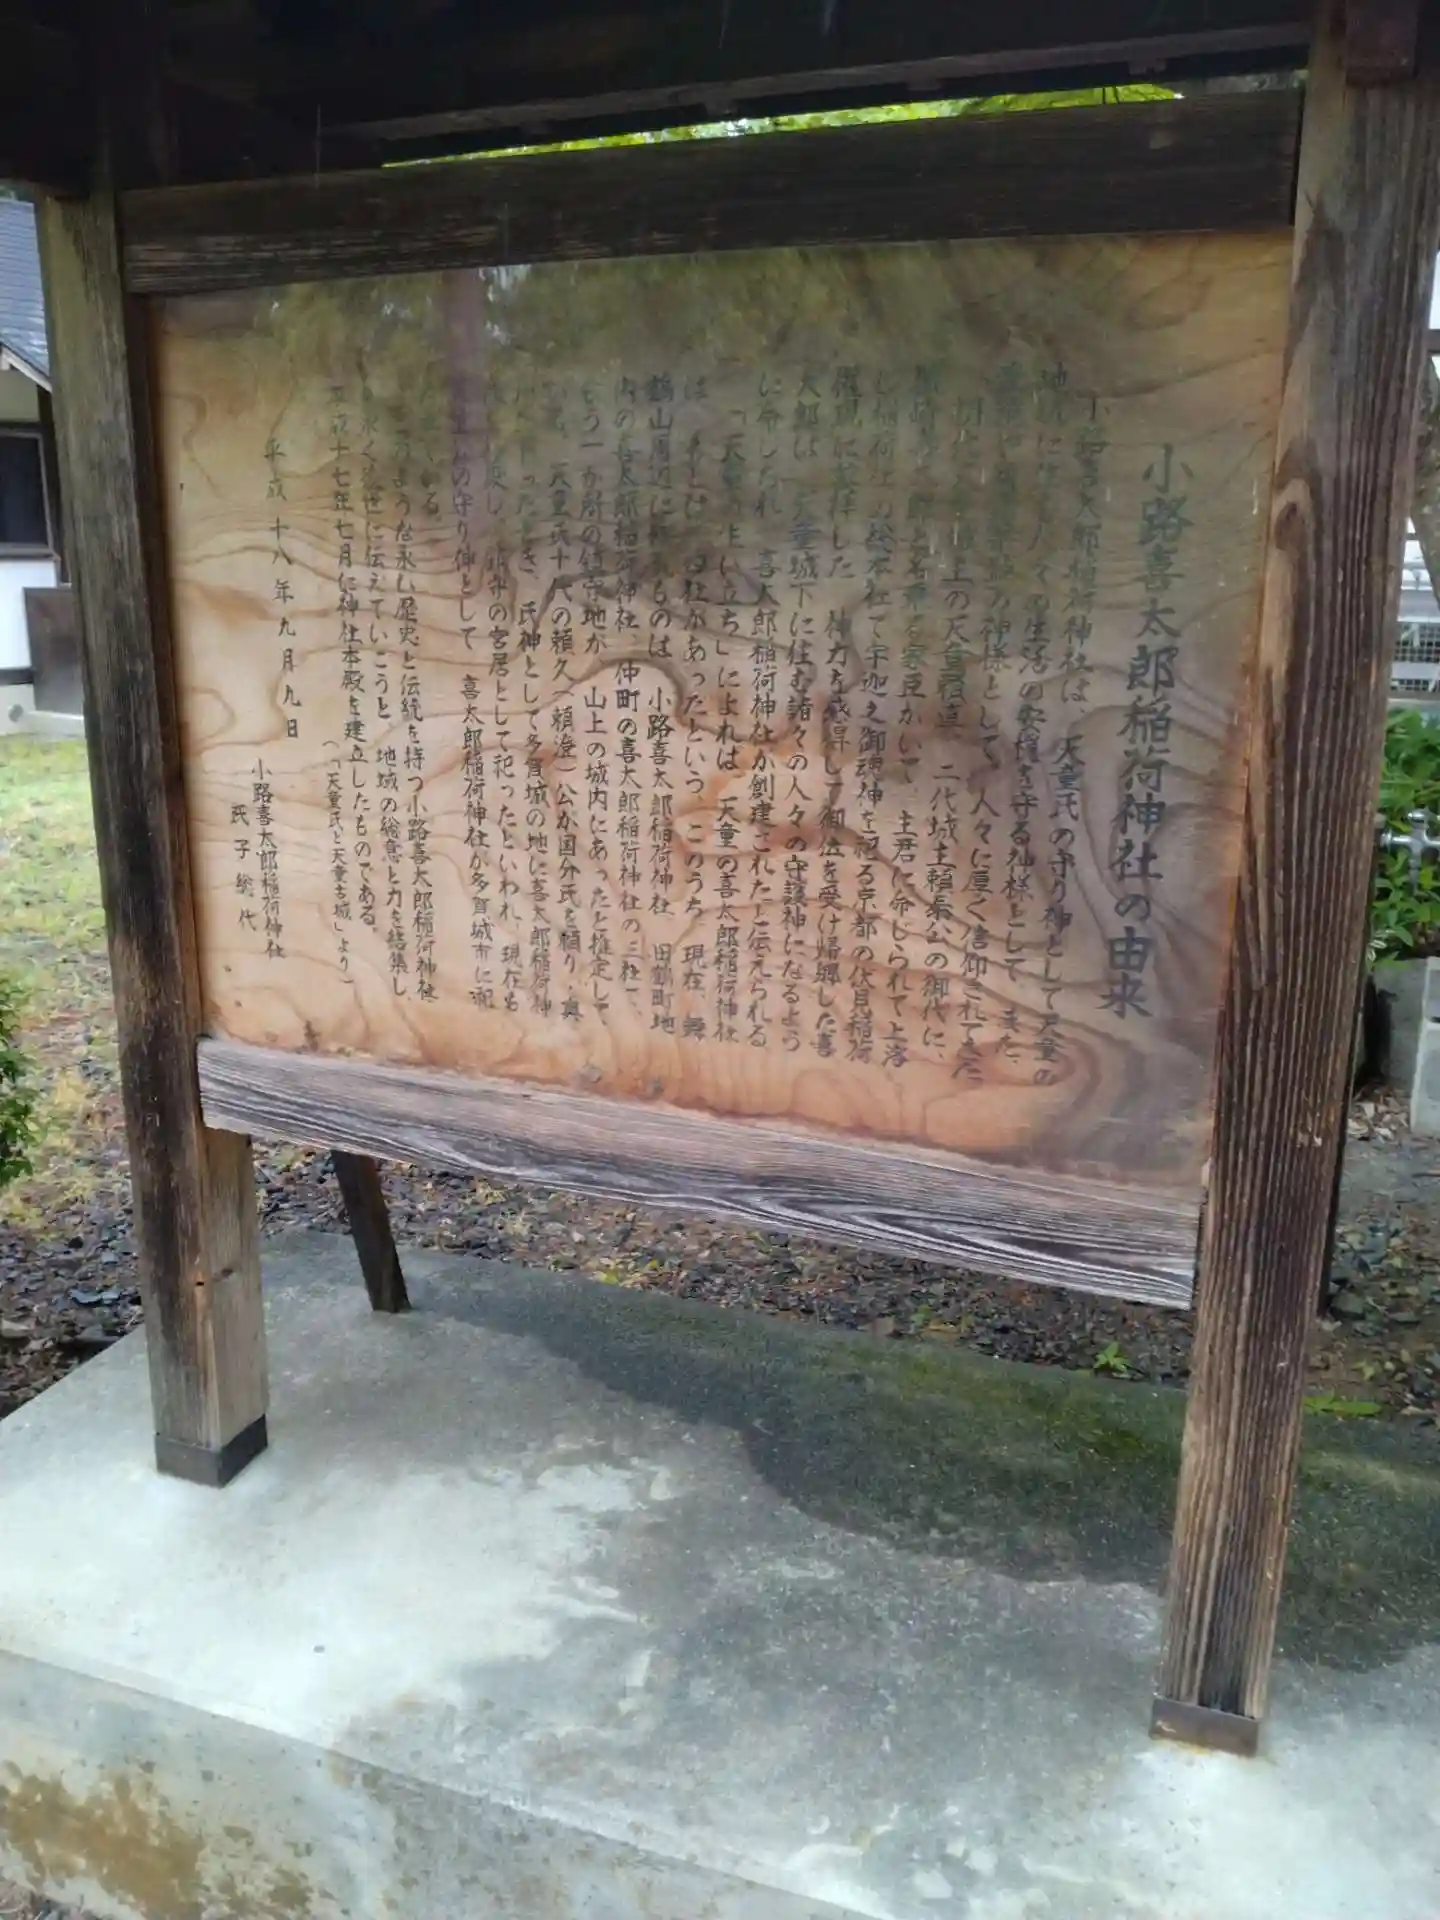 小路喜太郎稲荷神社の由来
小路喜太郎稲荷神社は、天童氏の守り神として天童の
地に住む人々の生活の安穏を守る神様として、また、
神様として、人々に厚く信仰されてきた。
上の天童 二代城主頼泰公の御代に、
家臣がいて、主君に命じられて上洛
し稲荷社の総本社で宇迦之御魂神を祀る京都の伏見稲荷
に参拝した 神力を感得して御位を受け帰郷した喜
太郎は 天童城下に住む諸々の人々の守護神になるよう
に命じられ 喜太郎稲荷神社が創建されたと伝えられる
「天童の生い立ち」によれば、天童の喜太郎稲荷神社
は 社があったという。このうち、現在、舞
鶴山周辺に ものは、小路喜太郎稲荷神社、田鶴町地
内の喜太郎稲荷神社、仲町の喜太郎稲荷神社の三社で、
もう一か所の鎮守地が、山上の城内にあったと推定して
いる。天童氏十代の頼久（頼澄）公が国分氏を頼り、奥
州へ下ったとき、氏神として多賀城の地に喜太郎稲荷神
鎮守の宮居として祀ったといわれ、現在も
の守り神として 喜太郎稲荷神社が多賀城市に
ている。
このような永い歴史と伝統を持つ小路喜太郎稲荷神社
を永く後世に伝えていこうと、地域の総意と力を結集し
平成十七年七月に神社本殿を建立したものである。
（「天童氏と天童古城」より）
平成十八年九月九日
小路喜太郎稲荷神社
氏子総代